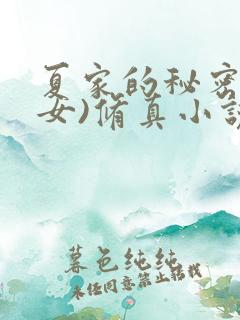 夏家的秘密
女)脩真小说
暮色纯纯
未经同意禁止转载